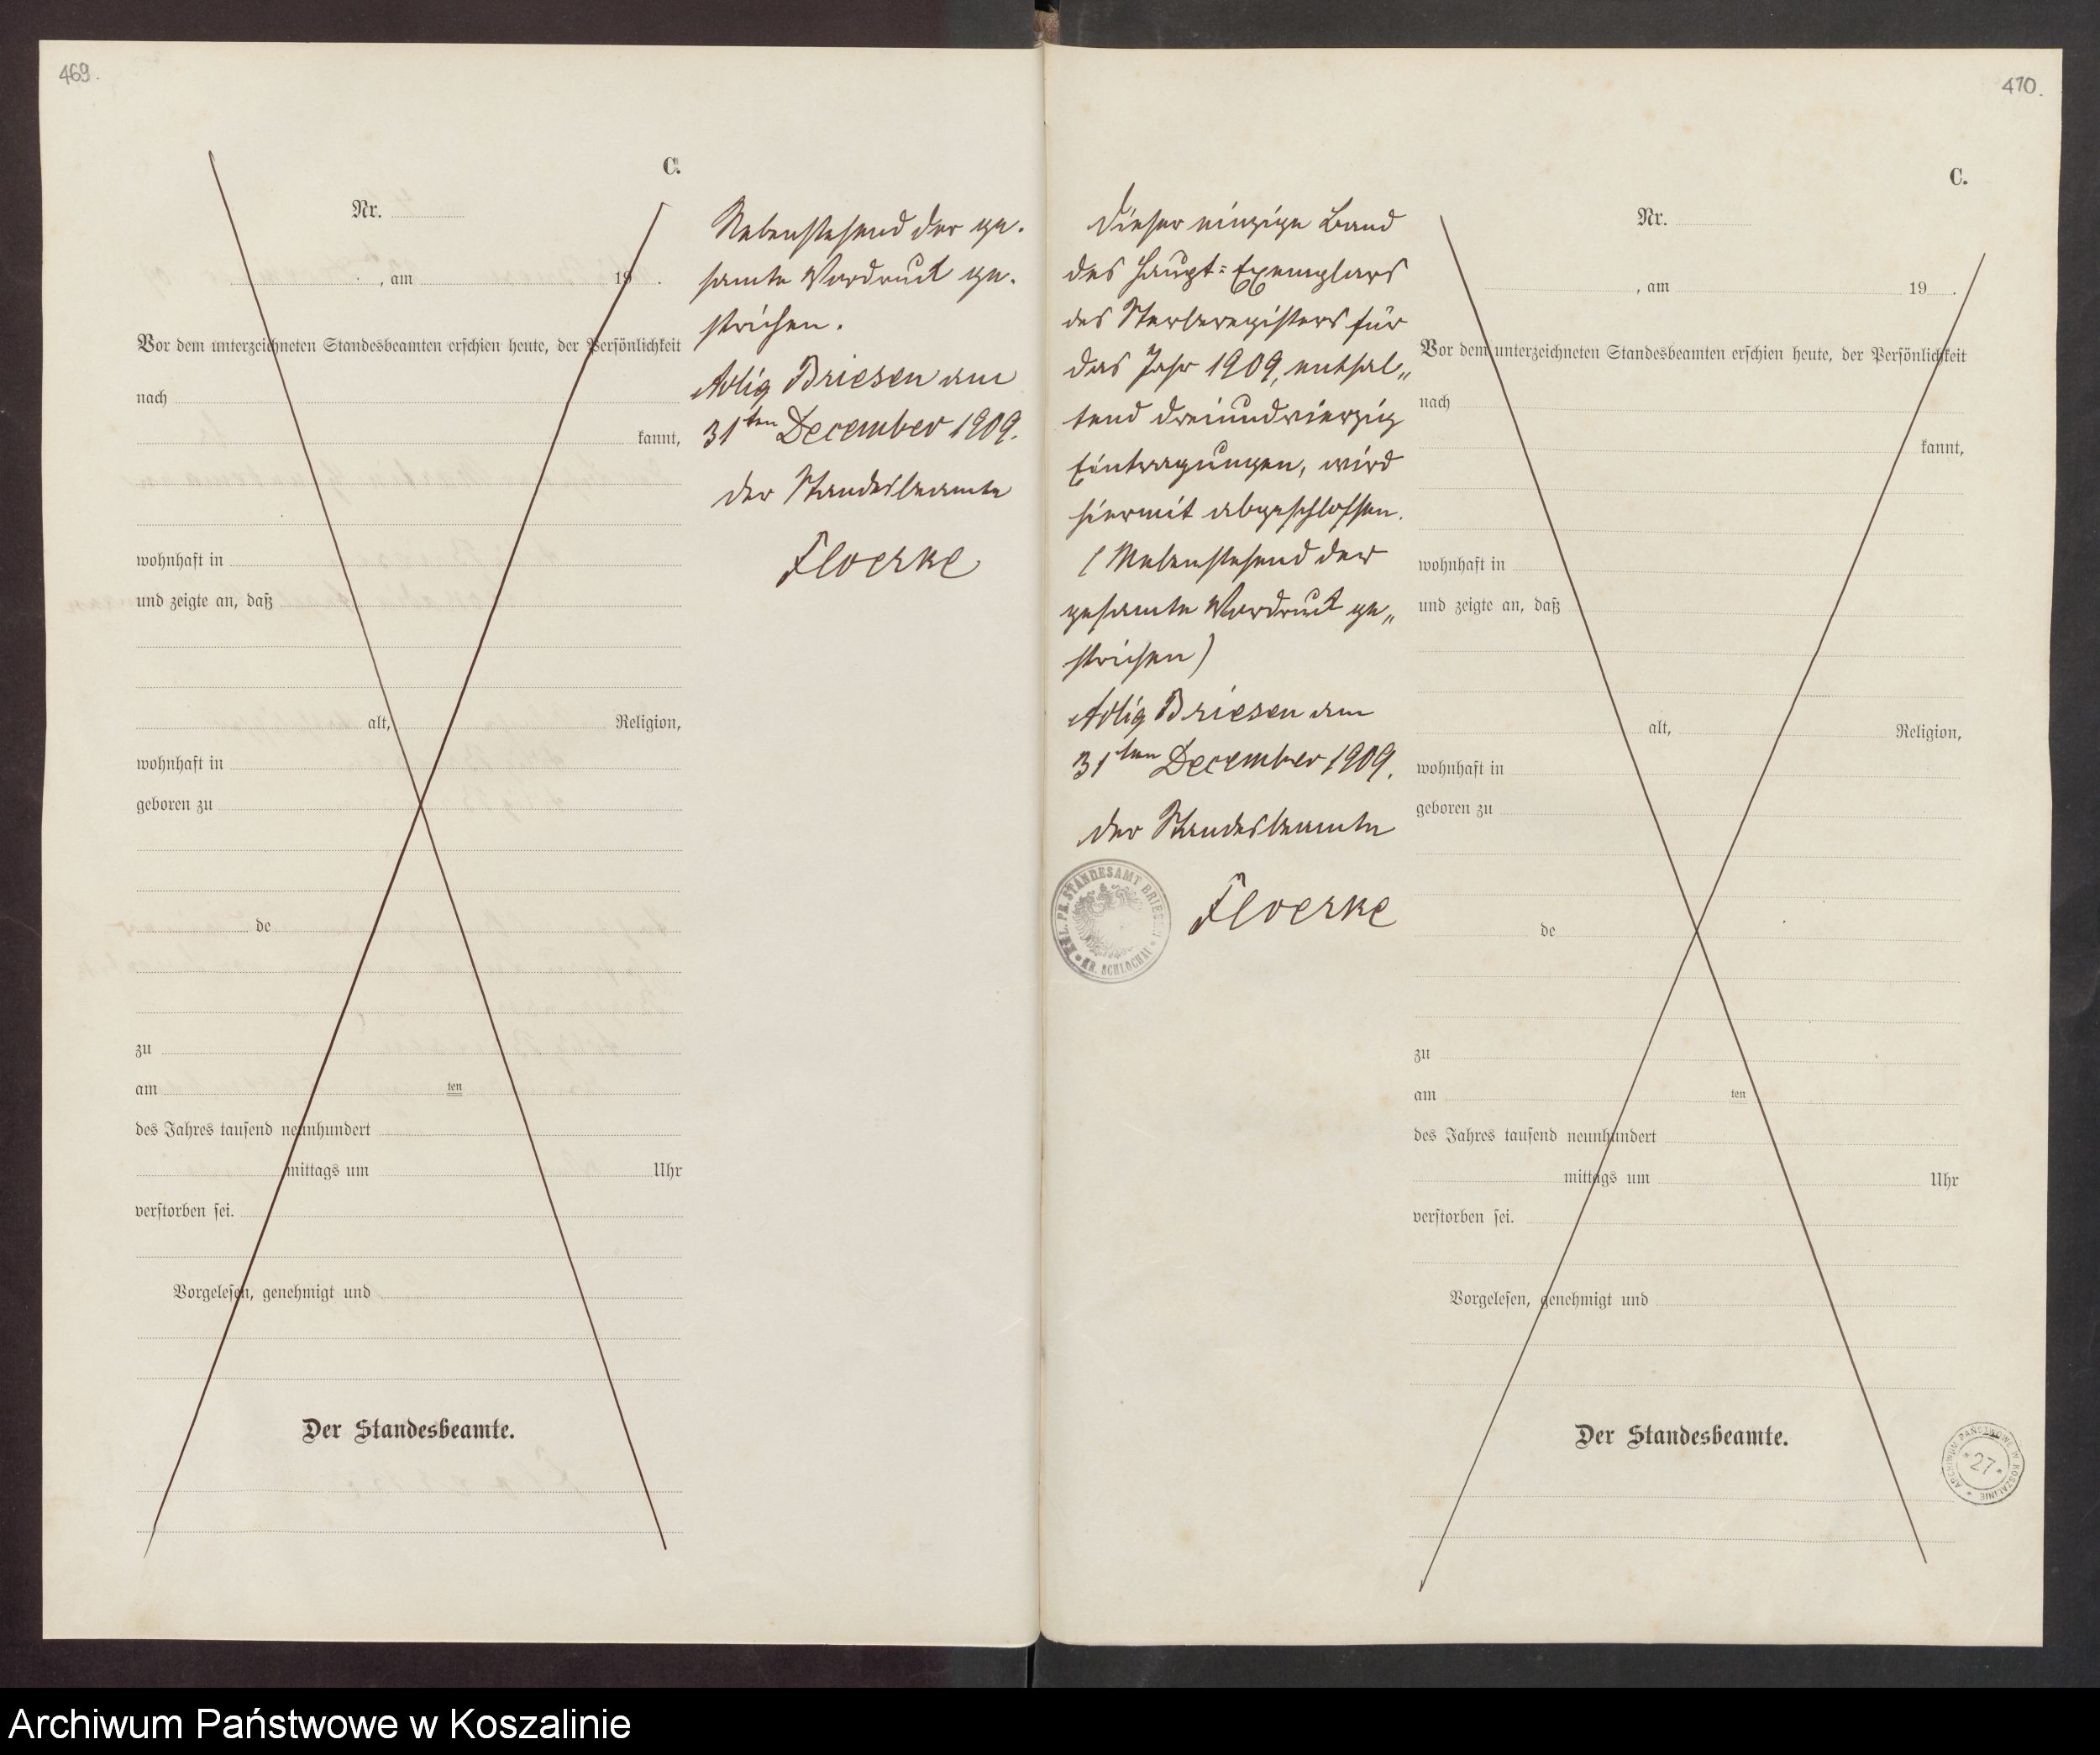 469.
C.
Nr.
, am 19 .
Vor dem unterzeichneten Standesbeamten erschien heute, der Persönlichkeit
nach
kannt,
wohnhaft in
und zeigte an, daß
alt, Religion,
wohnhaft in
geboren zu
de
zu
am ten
des Jahres tausend neunhundert
mittags um Uhr
verstorben sei.
Vorgelesen, genehmigt und
Der Standesbeamte.
Nebenstehend der ge-
samte Vordruck ge-
strichen.
Adlig Briesen am
31ten December 1909.
der Standesbeamte
Floerke
410.
Dieser einzige Band
des Haupt-Exemplars
des Sterberegisters für
das Jahr 1909, enthal„
tend dreiundvierzig
Eintragungen, wird
hiermit abgeschlossen.
(Nebenstehend der
gesamte Vordruck ge„
strichen)
Adlig Briesen am
31ten December 1909.
der Standesbeamte
Floerke
KGL. PR. STANDESAMT BRIESEN * KR. SCHLOCHAU *
C.
Nr.
, am 19 .
Vor dem unterzeichneten Standesbeamten erschien heute, der Persönlichkeit
nach
kannt,
wohnhaft in
und zeigte an, daß
alt, Religion,
wohnhaft in
geboren zu
de
zu
am ten
des Jahres tausend neunhundert
mittags um Uhr
verstorben sei.
Vorgelesen, genehmigt und
Der Standesbeamte.
ARCHIWUM PAŃSTWOWE W KOSZALINIE
* 27 *
Archiwum Państwowe w Koszalinie